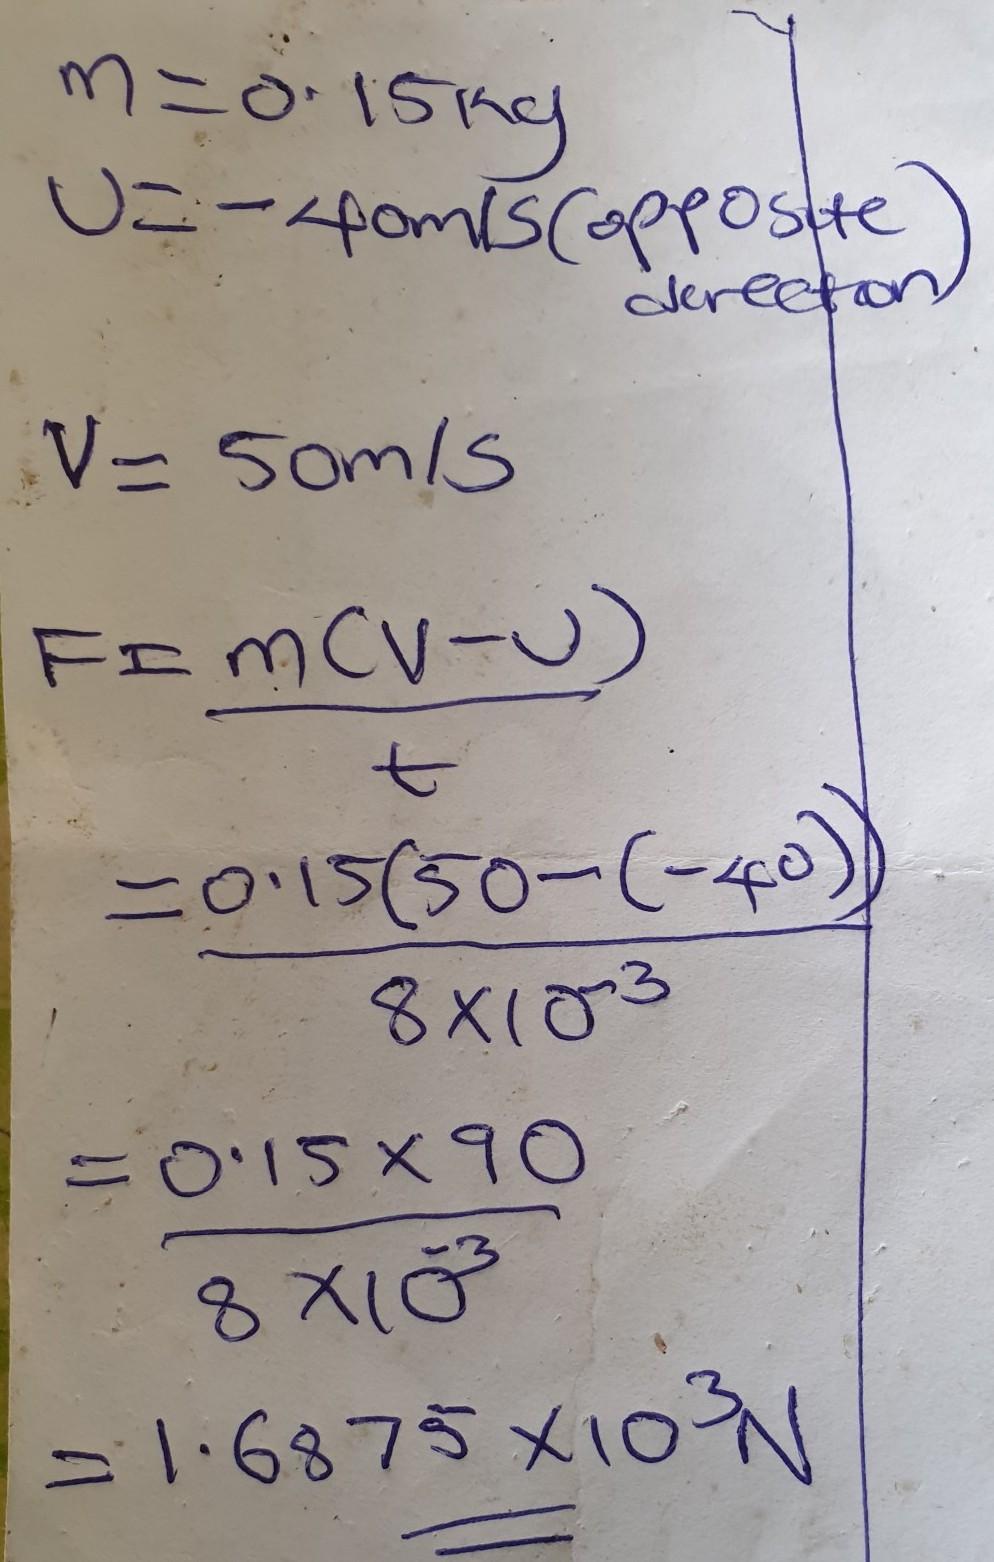 m = 0.15kg
U = -40m/s (opposite
derection)
V = 50m/s
F = m(V-U)
t
= 0.15(50-(-40))
8×10⁻³
= 0.15 × 90
8×10⁻³
= 1.6875 ×10³N